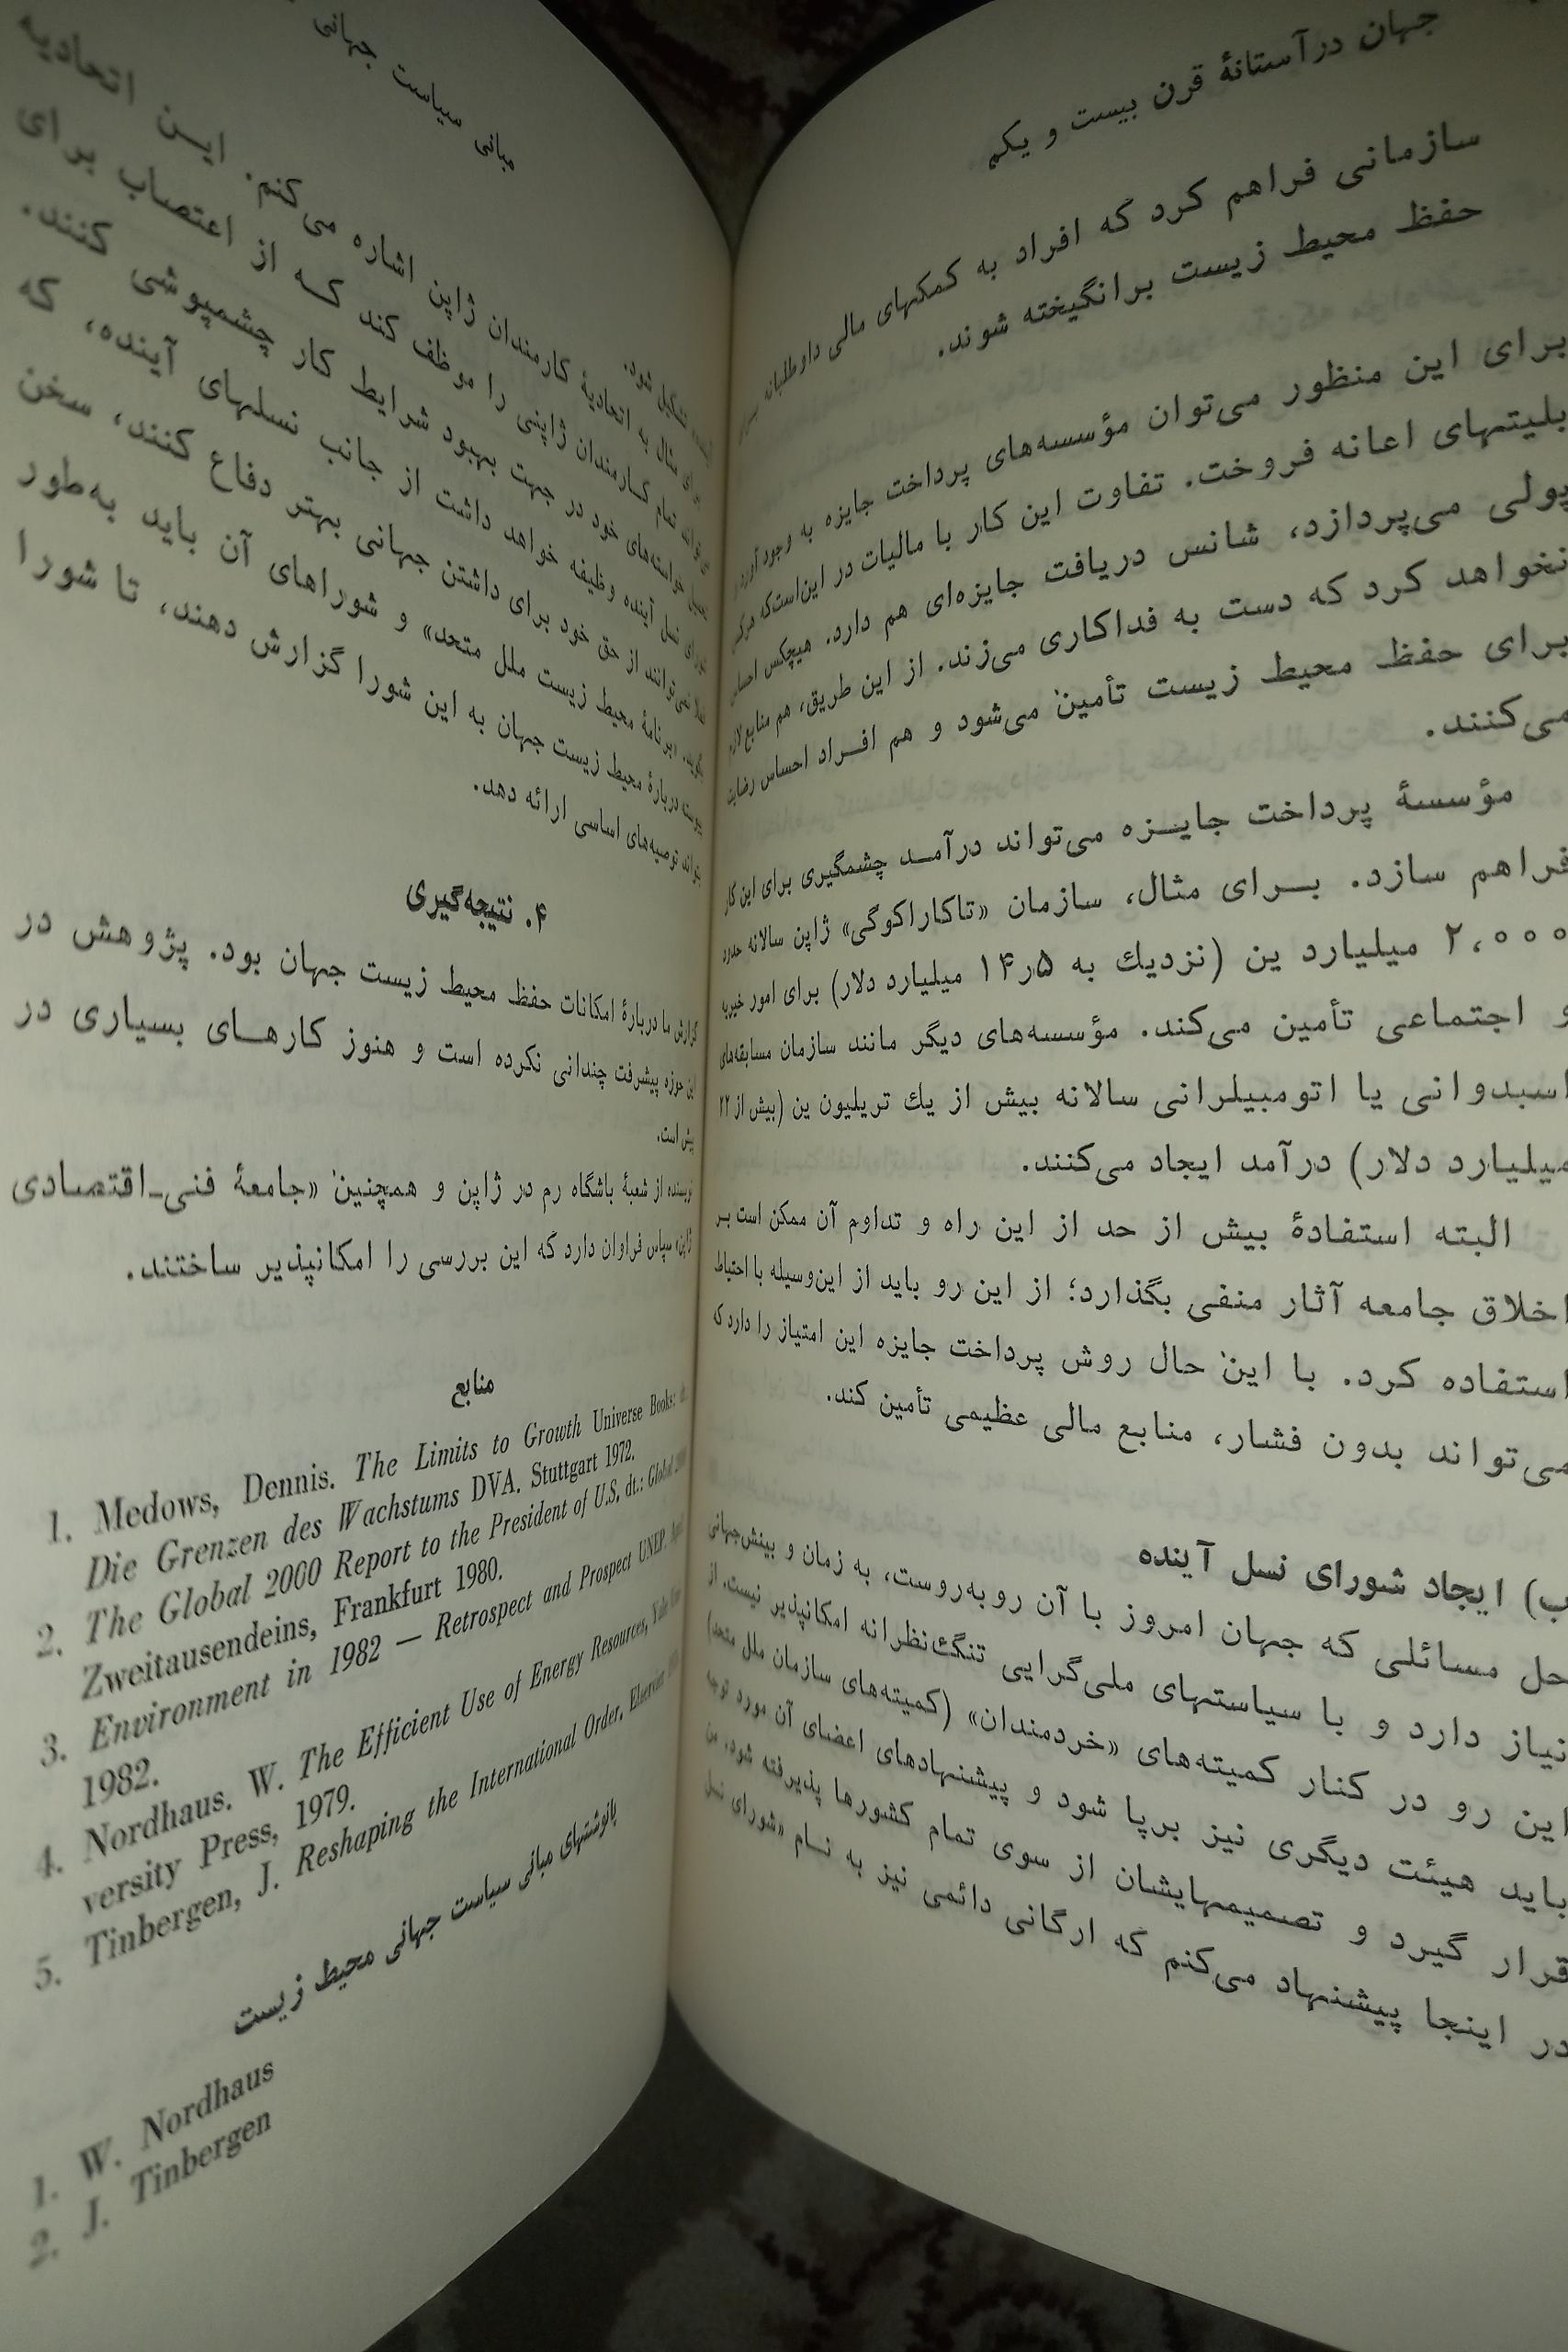 جهان در آستانهٔ قرن بیست و یکم
سازمانی فراهم کرد که افراد به کمکهای مالی داوطلبانه
حفظ محیط زیست برانگیخته شوند.
برای این منظور می‌توان مؤسسه‌های پرداخت جایزه به وجود آورد و
بلیتهای اعانه فروخت. تفاوت این کار با مالیات در این‌است‌که هرکس
پولی می‌پردازد، شانس دریافت جایزه‌ای هم دارد. هیچکس احساس
نخواهد کرد که دست به فداکاری می‌زند. از این طریق، هم منابع لازم
برای حفظ محیط زیست تأمین می‌شود و هم افراد احساس رضایت
می‌کنند.
مؤسسهٔ پرداخت جایزه می‌تواند درآمد چشمگیری برای این کار
فراهم سازد. برای مثال، سازمان «تاکاراکوگی» ژاپن سالانه حدود
۲،۰۰۰ میلیارد ین (نزدیك به ۱۴٫۵ میلیارد دلار) برای امور خیریه
و اجتماعی تأمین می‌کند. مؤسسه‌های دیگر مانند سازمان مسابقه‌های
اسبدوانی یا اتومبیلرانی سالانه بیش از یك تریلیون ین (بیش از ۲۲
میلیارد دلار) درآمد ایجاد می‌کنند.
البته استفادهٔ بیش از حد از این راه و تداوم آن ممکن است بر
اخلاق جامعه آثار منفی بگذارد؛ از این رو باید از این‌وسیله با احتیاط
استفاده کرد. با این حال روش پرداخت جایزه این امتیاز را دارد که
می‌تواند بدون فشار، منابع مالی عظیمی تأمین کند.
ب) ایجاد شورای نسل آینده
حل مسائلی که جهان امروز با آن روبه‌روست، به زمان و بینش‌جهانی
نیاز دارد و با سیاستهای ملی‌گرایی تنگ‌نظرانه امکانپذیر نیست. از
این رو در کنار کمیته‌های «خردمندان» (کمیته‌های سازمان ملل متحد)
باید هیئت دیگری نیز برپا شود و پیشنهادهای اعضای آن مورد توجه
قرار گیرد و تصمیمهایشان از سوی تمام کشورها پذیرفته شود. من
در اینجا پیشنهاد می‌کنم که ارگانی دائمی نیز به نام «شورای نسل
مبانی سیاست جهانی
تشکیل شود.
برای مثال به اتحادیهٔ کارمندان ژاپن اشاره می‌کنم. این اتحادیه
می‌تواند تمام کارمندان ژاپنی را موظف کند که از اعتصاب برای
خواسته‌های خود در جهت بهبود شرایط کار چشمپوشی کنند.
شورای نسل آینده وظیفه خواهد داشت از جانب نسلهای آینده، که
نمی‌توانند از حق خود برای داشتن جهانی بهتر دفاع کنند، سخن
بگوید. «برنامهٔ محیط زیست ملل متحد» و شوراهای آن باید به‌طور
پیوسته دربارهٔ محیط زیست جهان به این شورا گزارش دهند، تا شورا
بتواند توصیه‌های اساسی ارائه دهد.
۴. نتیجه‌گیری
گزارش ما دربارهٔ امکانات حفظ محیط زیست جهان بود. پژوهش در
این حوزه پیشرفت چندانی نکرده است و هنوز کارهای بسیاری در
پیش است.
نویسنده از شعبهٔ باشگاه رم در ژاپن و همچنین «جامعهٔ فنی-اقتصادی
ژاپن» سپاس فراوان دارد که این بررسی را امکانپذیر ساختند.
منابع
1. Medows, Dennis. The Limits to Growth Universe Books:
Die Grenzen des Wachstums DVA. Stuttgart 1972.
2. The Global 2000 Report to the President of U.S. dt.: Global 2000
Zweitausendeins, Frankfurt 1980.
3. Environment in 1982 — Retrospect and Prospect UNEP.
1982.
4. Nordhaus. W. The Efficient Use of Energy Resources, Yale
versity Press, 1979.
5. Tinbergen, J. Reshaping the International Order,
پانوشتهای مبانی سیاست جهانی محیط زیست
1. W. Nordhaus
2. J. Tinbergen